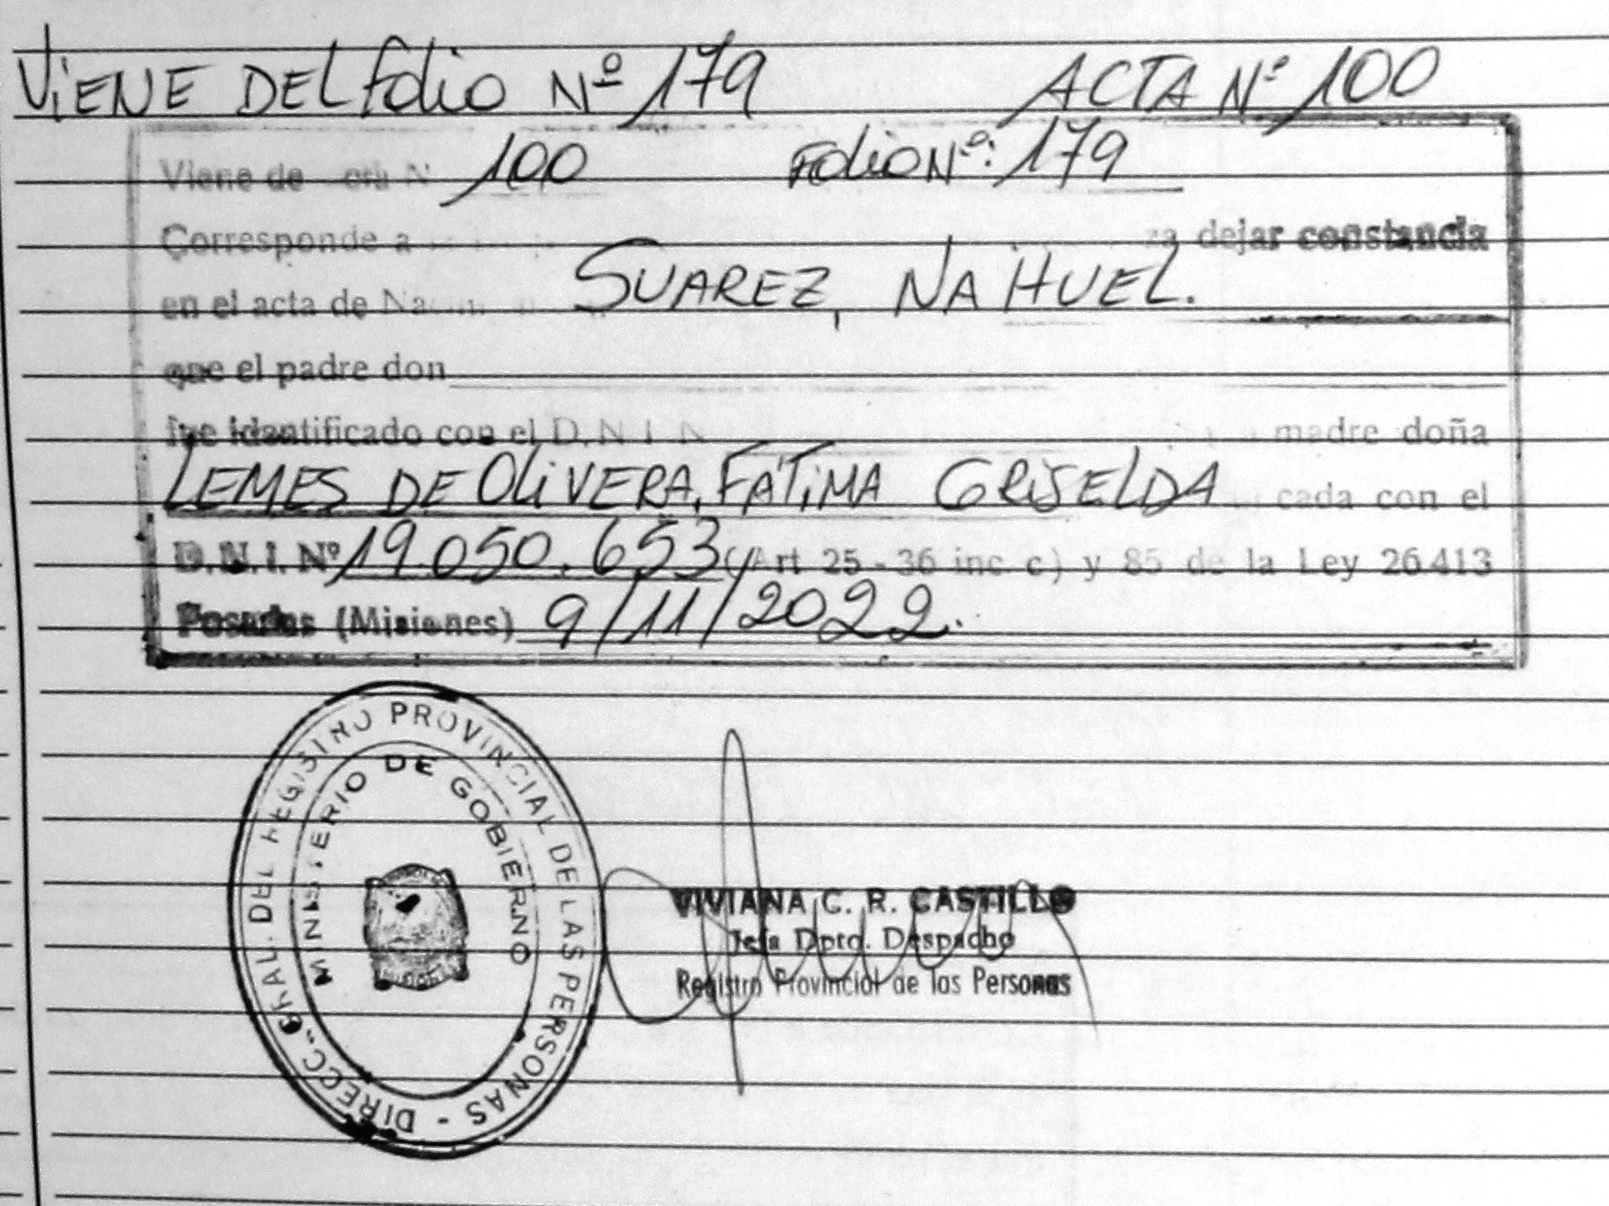 ViENE DEL folio Nº 179 ACTA Nº 100
Viene de N 100 Folio Nº: 179
Corresponde a za dejar constancia
en el acta de SUAREZ, NAHUEL.
que el padre don
fue identificado con el D.N.I. N madre doña
LEMES DE OLiVERA, FÁTiMA GRiSELDA cada con el
D.N.I. Nº 19.050.653 (Art 25 - 36 inc. c) y 85 de la Ley 26.413
Posadas (Misiones) 9/11/2022.
DIRECC. GRAL. DEL REGISTRO PROVINCIAL DE LAS PERSONAS -
MINISTERIO DE GOBIERNO
VIVIANA C. R. CASTILLO
Jefa Dpto. Despacho
Registro Provincial de las Personas